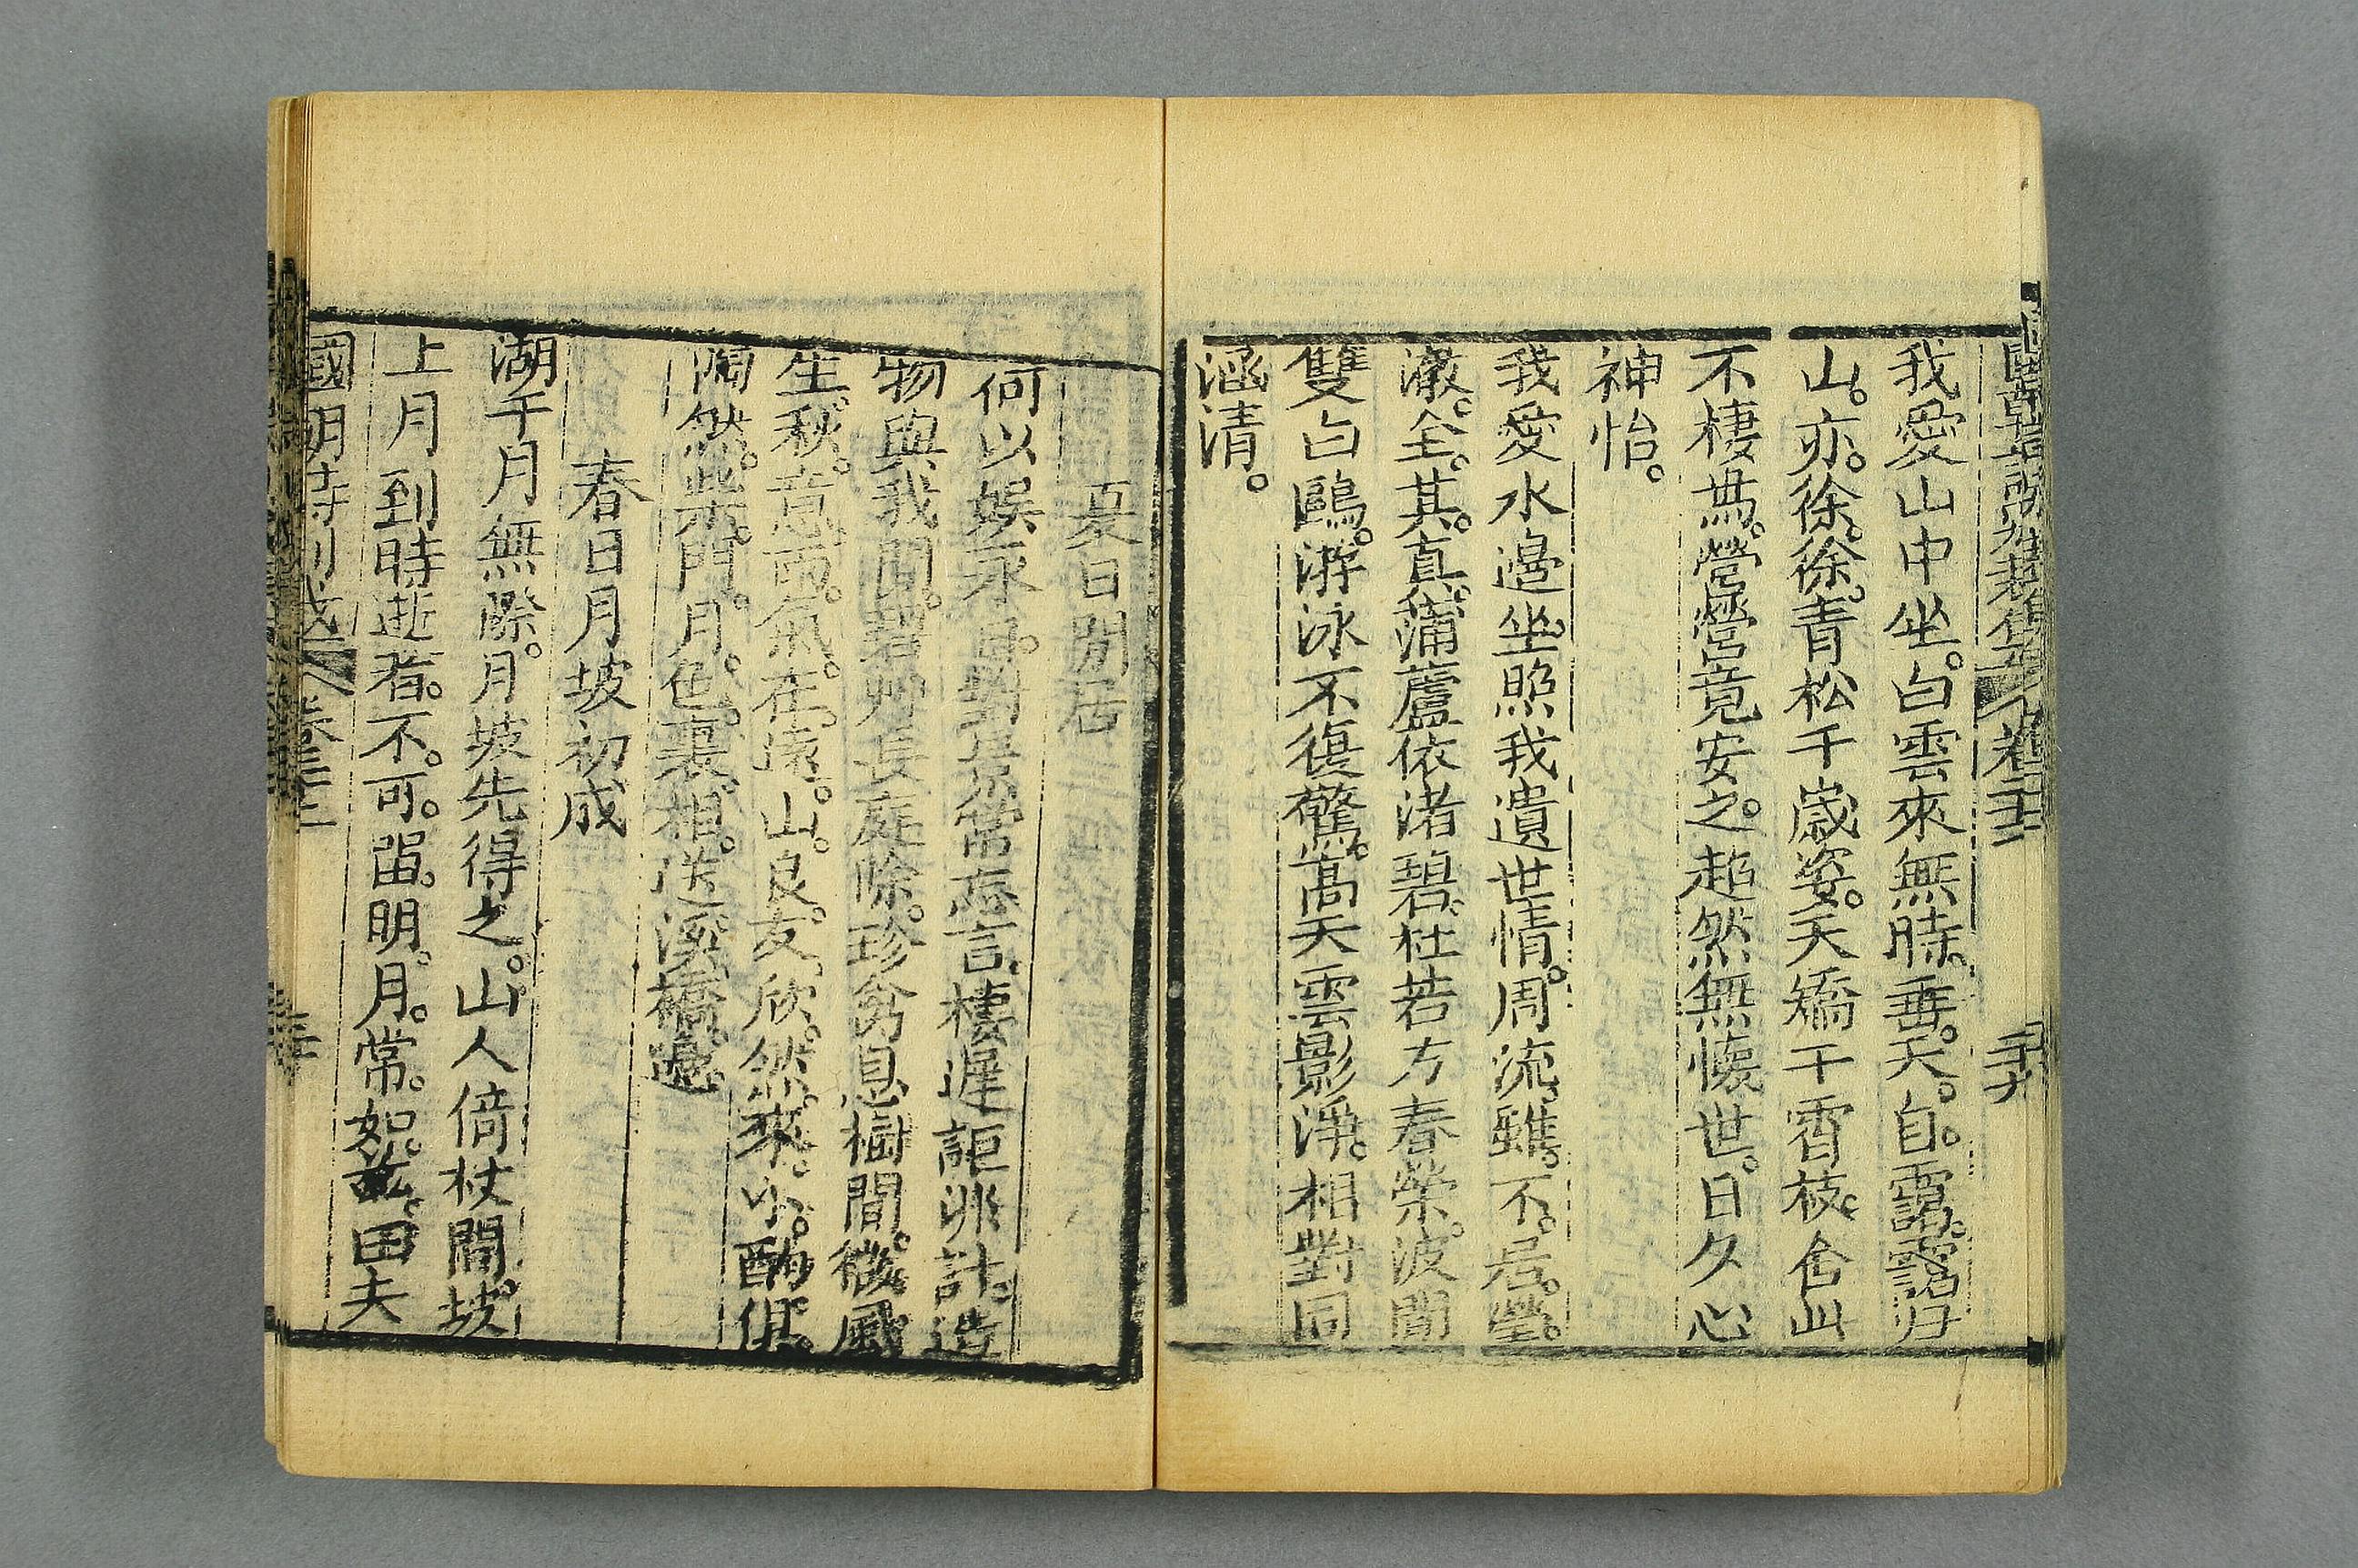 我愛山中坐白雲來無時垂天自靄靄归
山亦徐徐青松千歲姿夭矯干霄枝舍此
不棲焉營營竟安之超然無懷世日夕心
神怡
我愛水邊坐照我遺世情周流雖不居瑩
澈全其真蒲蘆依渚碧杜若方春榮波間
雙白鷗游泳不復驚高天雲影淨相對同
涵清
夏日閒居
何以娱永日對景常忘言棲遲詎非計造
物與我閒碧艸長庭除珍禽息樹間微風
生秋意雨氣在遠山良友欣然來小酌俱
陶然柴門月色裏相送溪橋邊
春日月坡初成
湖干月無際月坡先得之山人倚杖間坡
上月到時逝者不可畱明月常如故田夫
國朝詩別裁 卷三十二